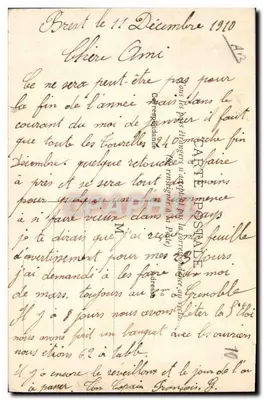 Brest le 11 Décembre 1910
Chère Ami
Ce ne sera peut être pas pour
la fin de l'année mais dans le
courant du moi de Janvier il faut
que toute les Tourelles 240 marche fin
Décembre quelque retouche a faire
a près et se sera tout du moins
pour commence
a n faire vieux dans pays
je te dirais que j'ai reçu ma feuille
d'avertissement pour mes 23 jours
j'ai demandé a les faire moi
de mars toujours au Grenoble
Il y à 8 jours nous avons fêter la St Eloi
nous avons fait un banquet avec les ouvriers
nous étions 62 à table
il y a encore le reveillons et le jour de l'an
a passer. Ton Copain François G.
CARTE POSTALE
Correspondance